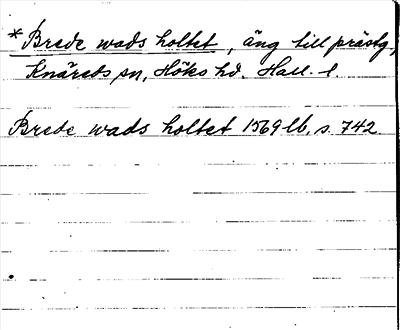 * Brede wads holtet, äng till prästg,
Knäreds sn, Höks hd. Hall. l.
Brede wads holtet 1569 lb, s. 742.